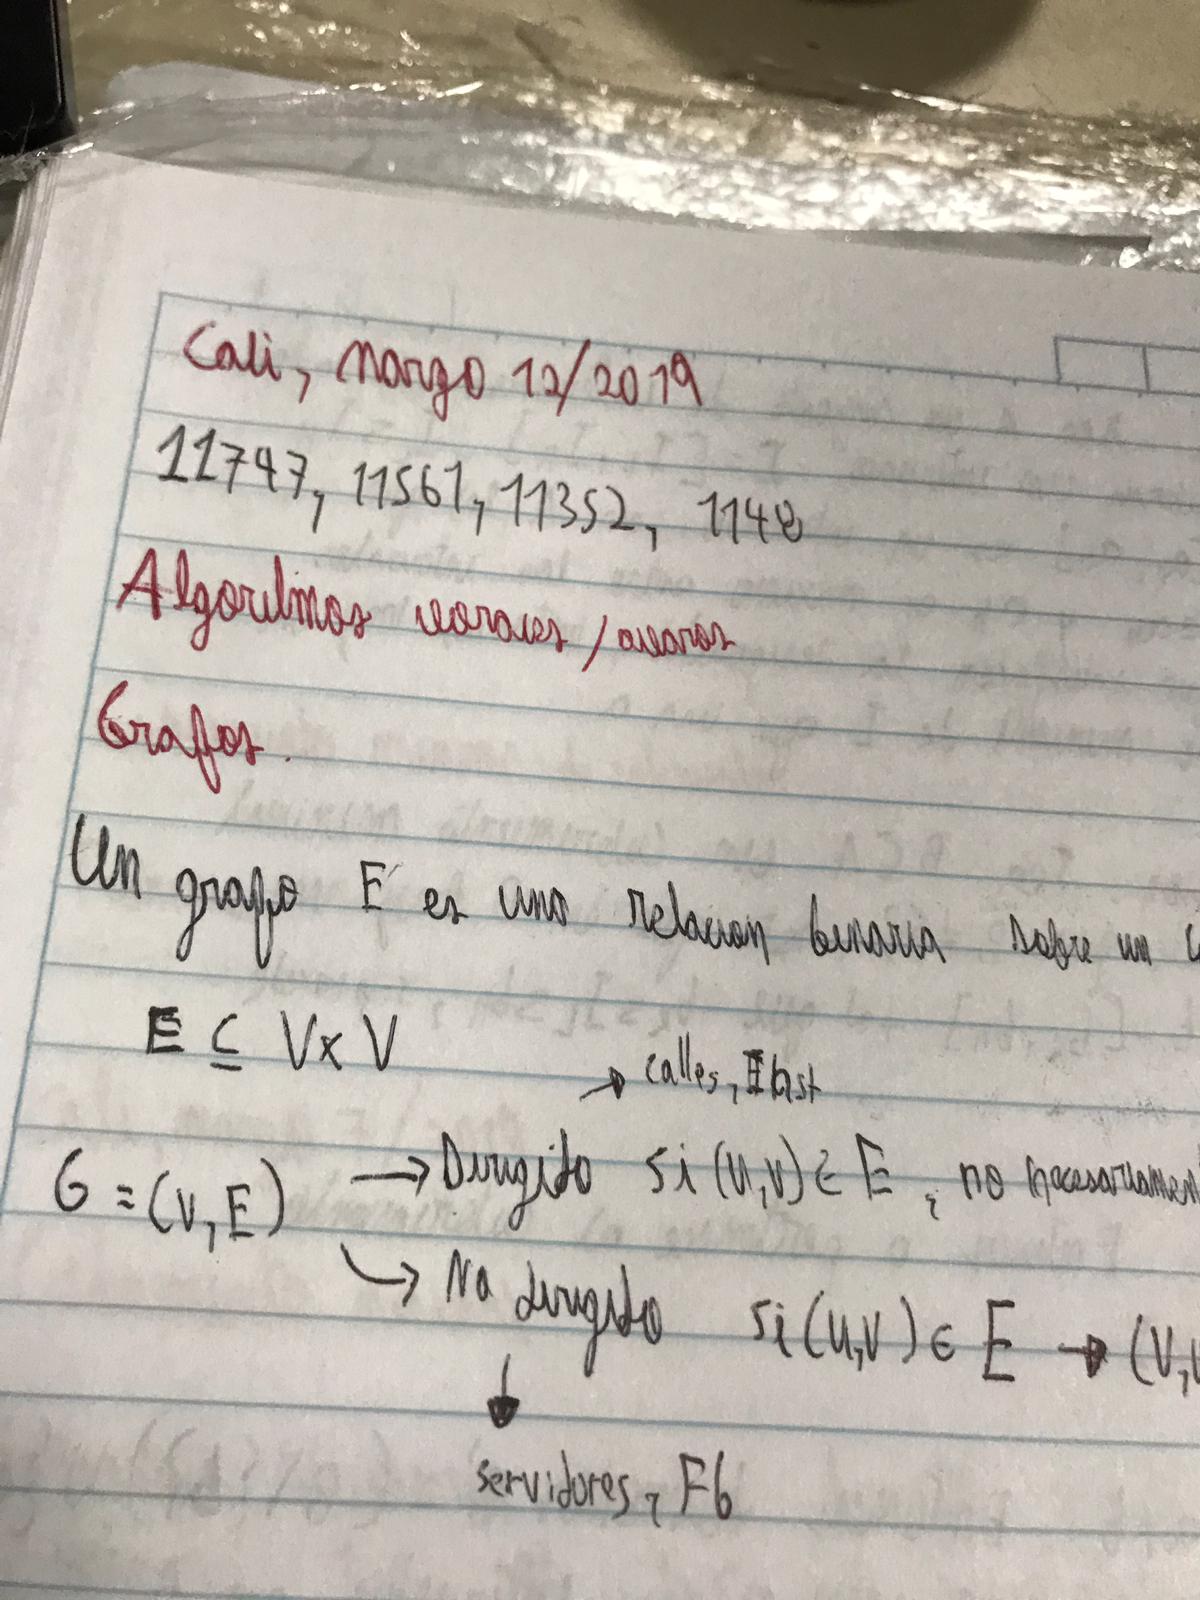 Cali, marzo 12/2019
11747, 11561, 11352, 1148
Algoritmos voraces / avaros
Grafos.
Un grafo E es una relacion binaria sobre un
E ⊆ V x V
→ calles,
G = (V, E) → Dirigido si (u,v) ∈ E, no necesariamen
→ No dirigido si (u,v) ∈ E → (v,
↓
servidores, Fb